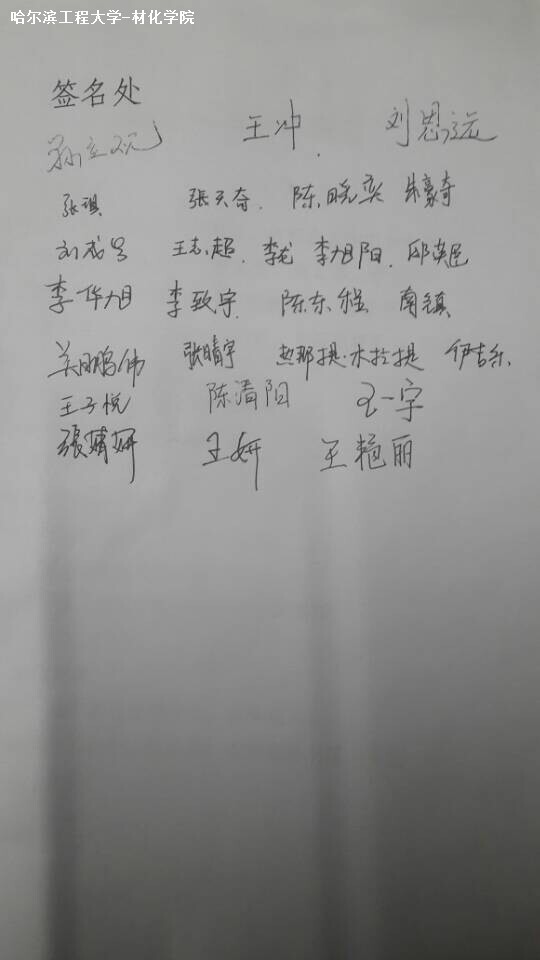 哈尔滨工程大学-材化学院
签名处
王冲 刘思远
张琪 张天奇. 陈晓奕 朱豪奇
王志超. 李龙 李旭阳. 邱英臣
李华旭 李致宇. 陈东程 南镇
吴鹏伟 张晴宇 热那提·木拉提 伊吉乐
王子悦 陈清阳 王一宇
張婧妍 王妍 王艳丽